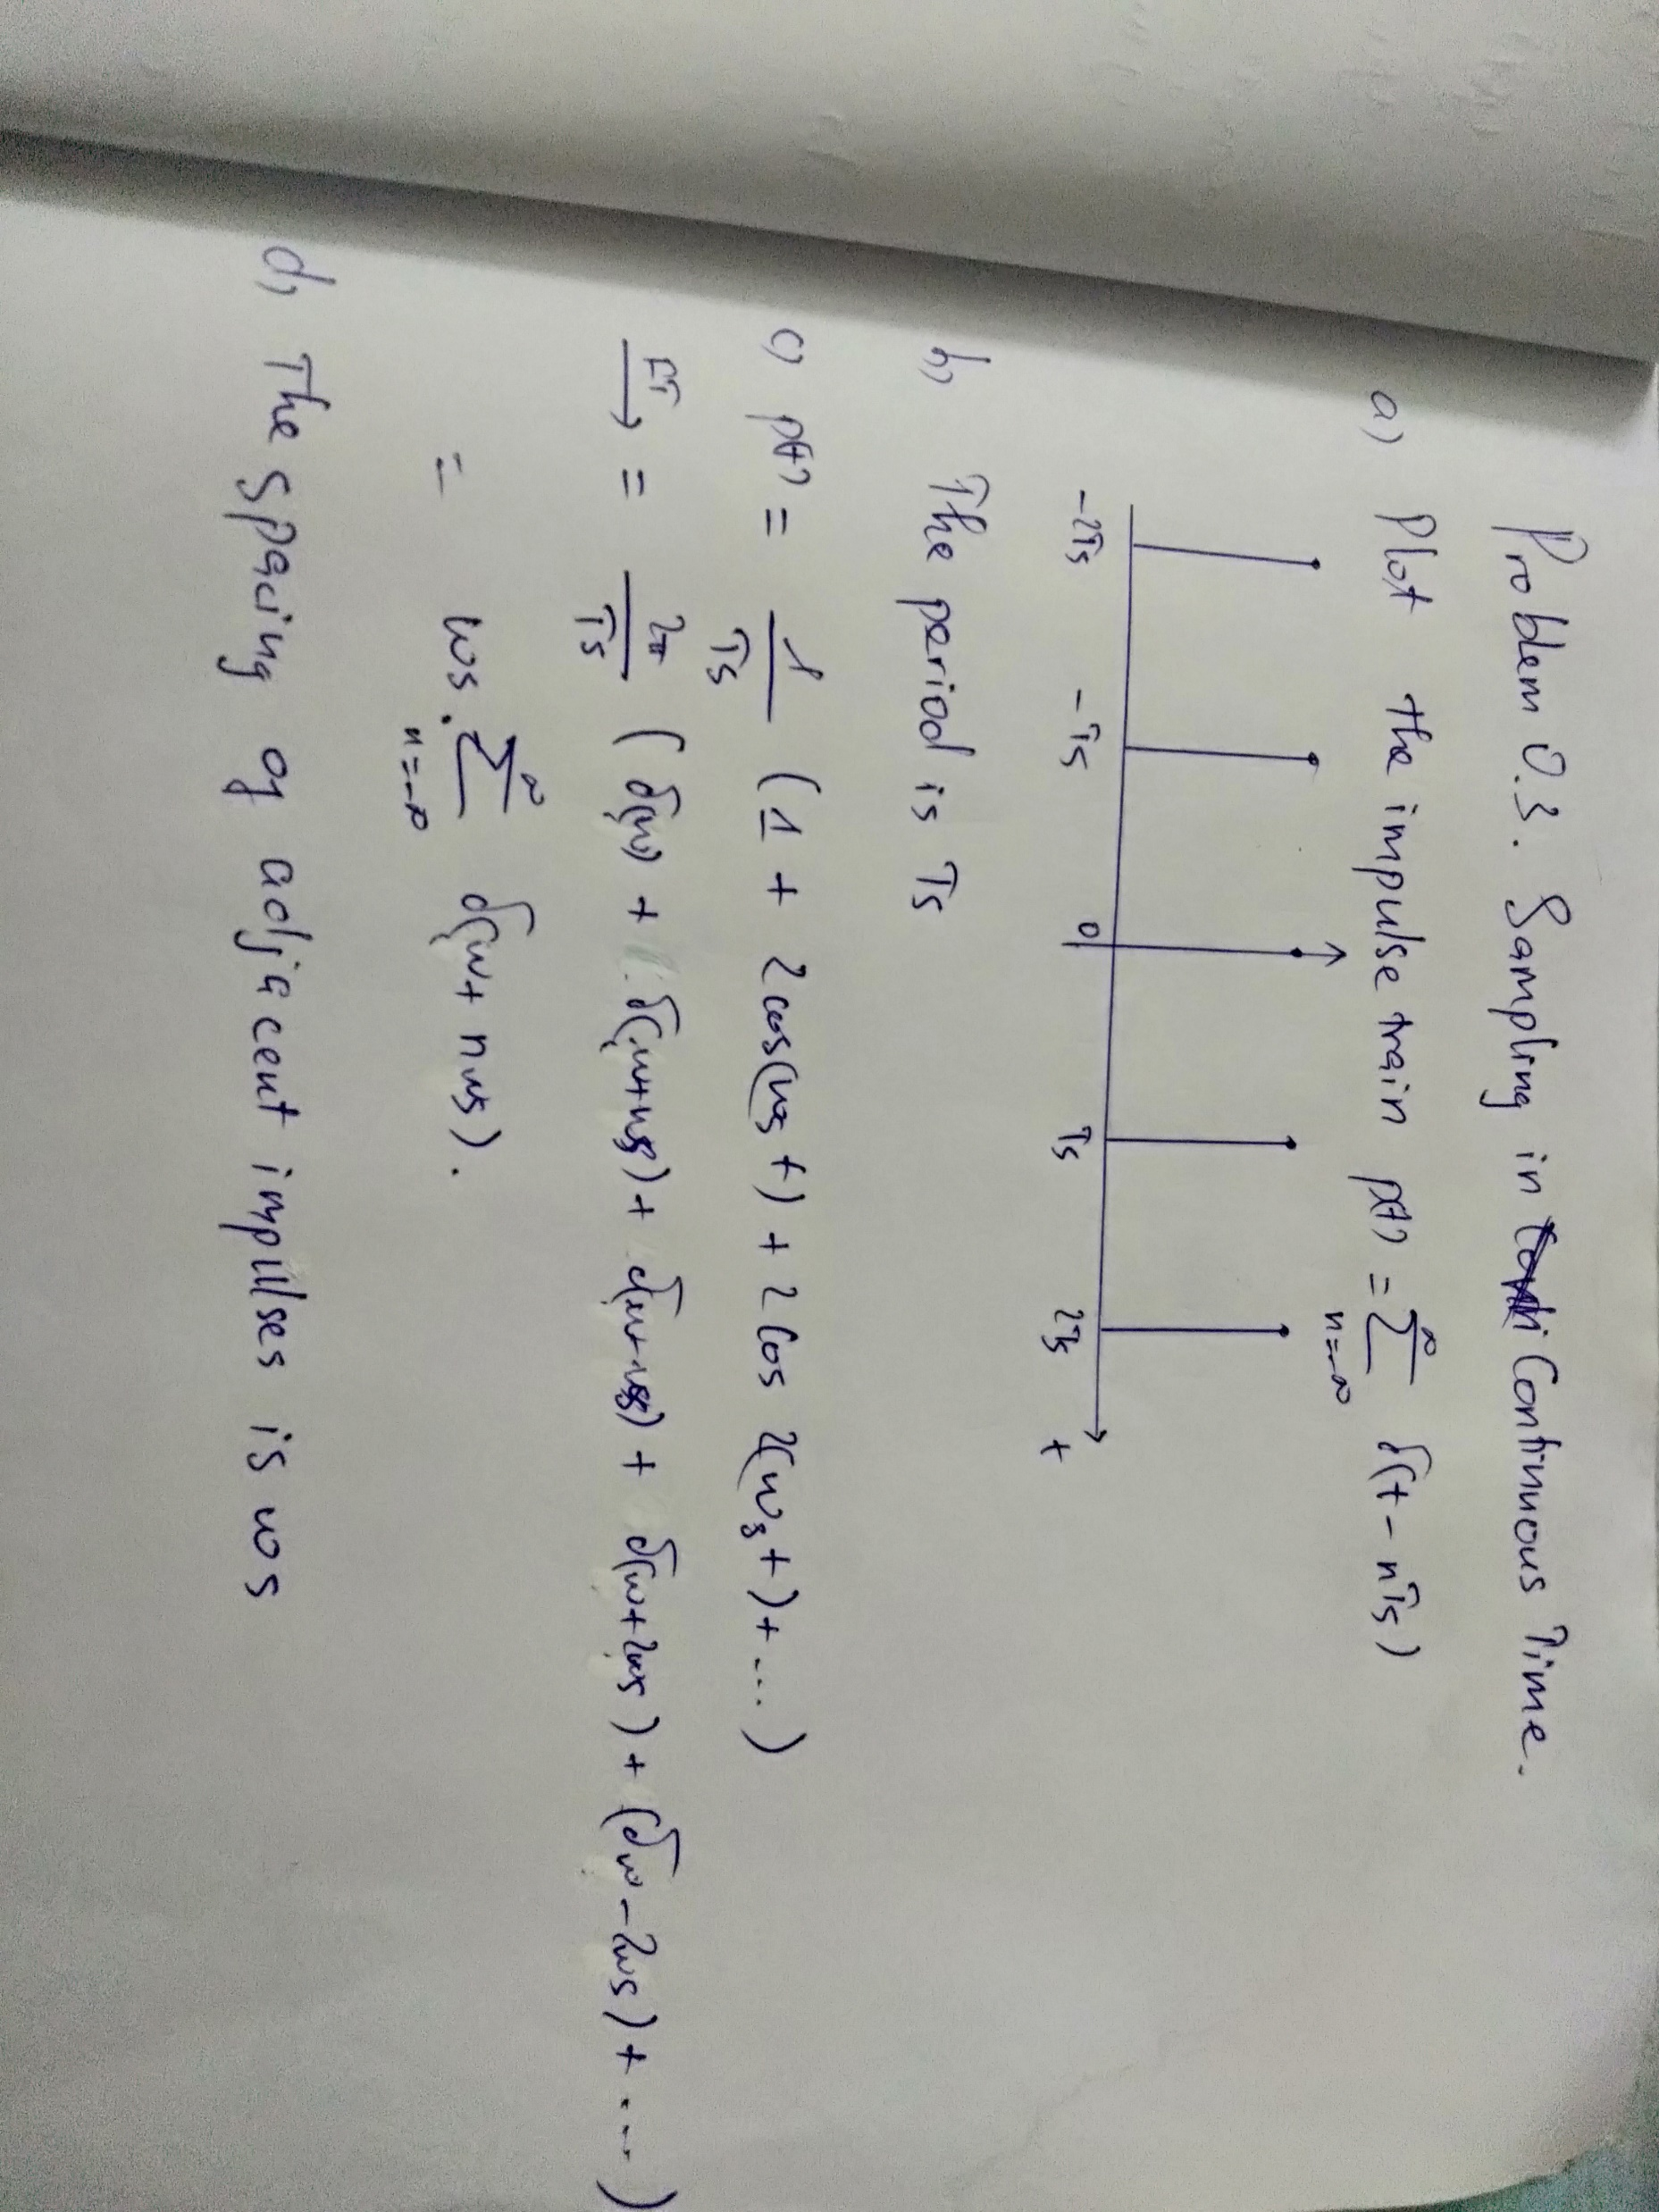 Problem 0.3. Sampling in Continuous Time.
a) Plot the impulse train p(t) = ∑_{n=-∞}^{∞} δ(t - nTs)
-2Ts -Ts 0 Ts 2Ts t
b) The period is Ts
c) p(t) = 1/Ts (1 + 2cos(ws t) + 2 cos 2(ws t) + ...)
FT → = 2π/Ts (δ(w) + δ(w+ws) + δ(w-ws) + δ(w+2ws) + (δw-2ws) + ...)
= ws . ∑_{n=-∞}^{∞} δ(w + nws).
d) The spacing of adjacent impulses is ws